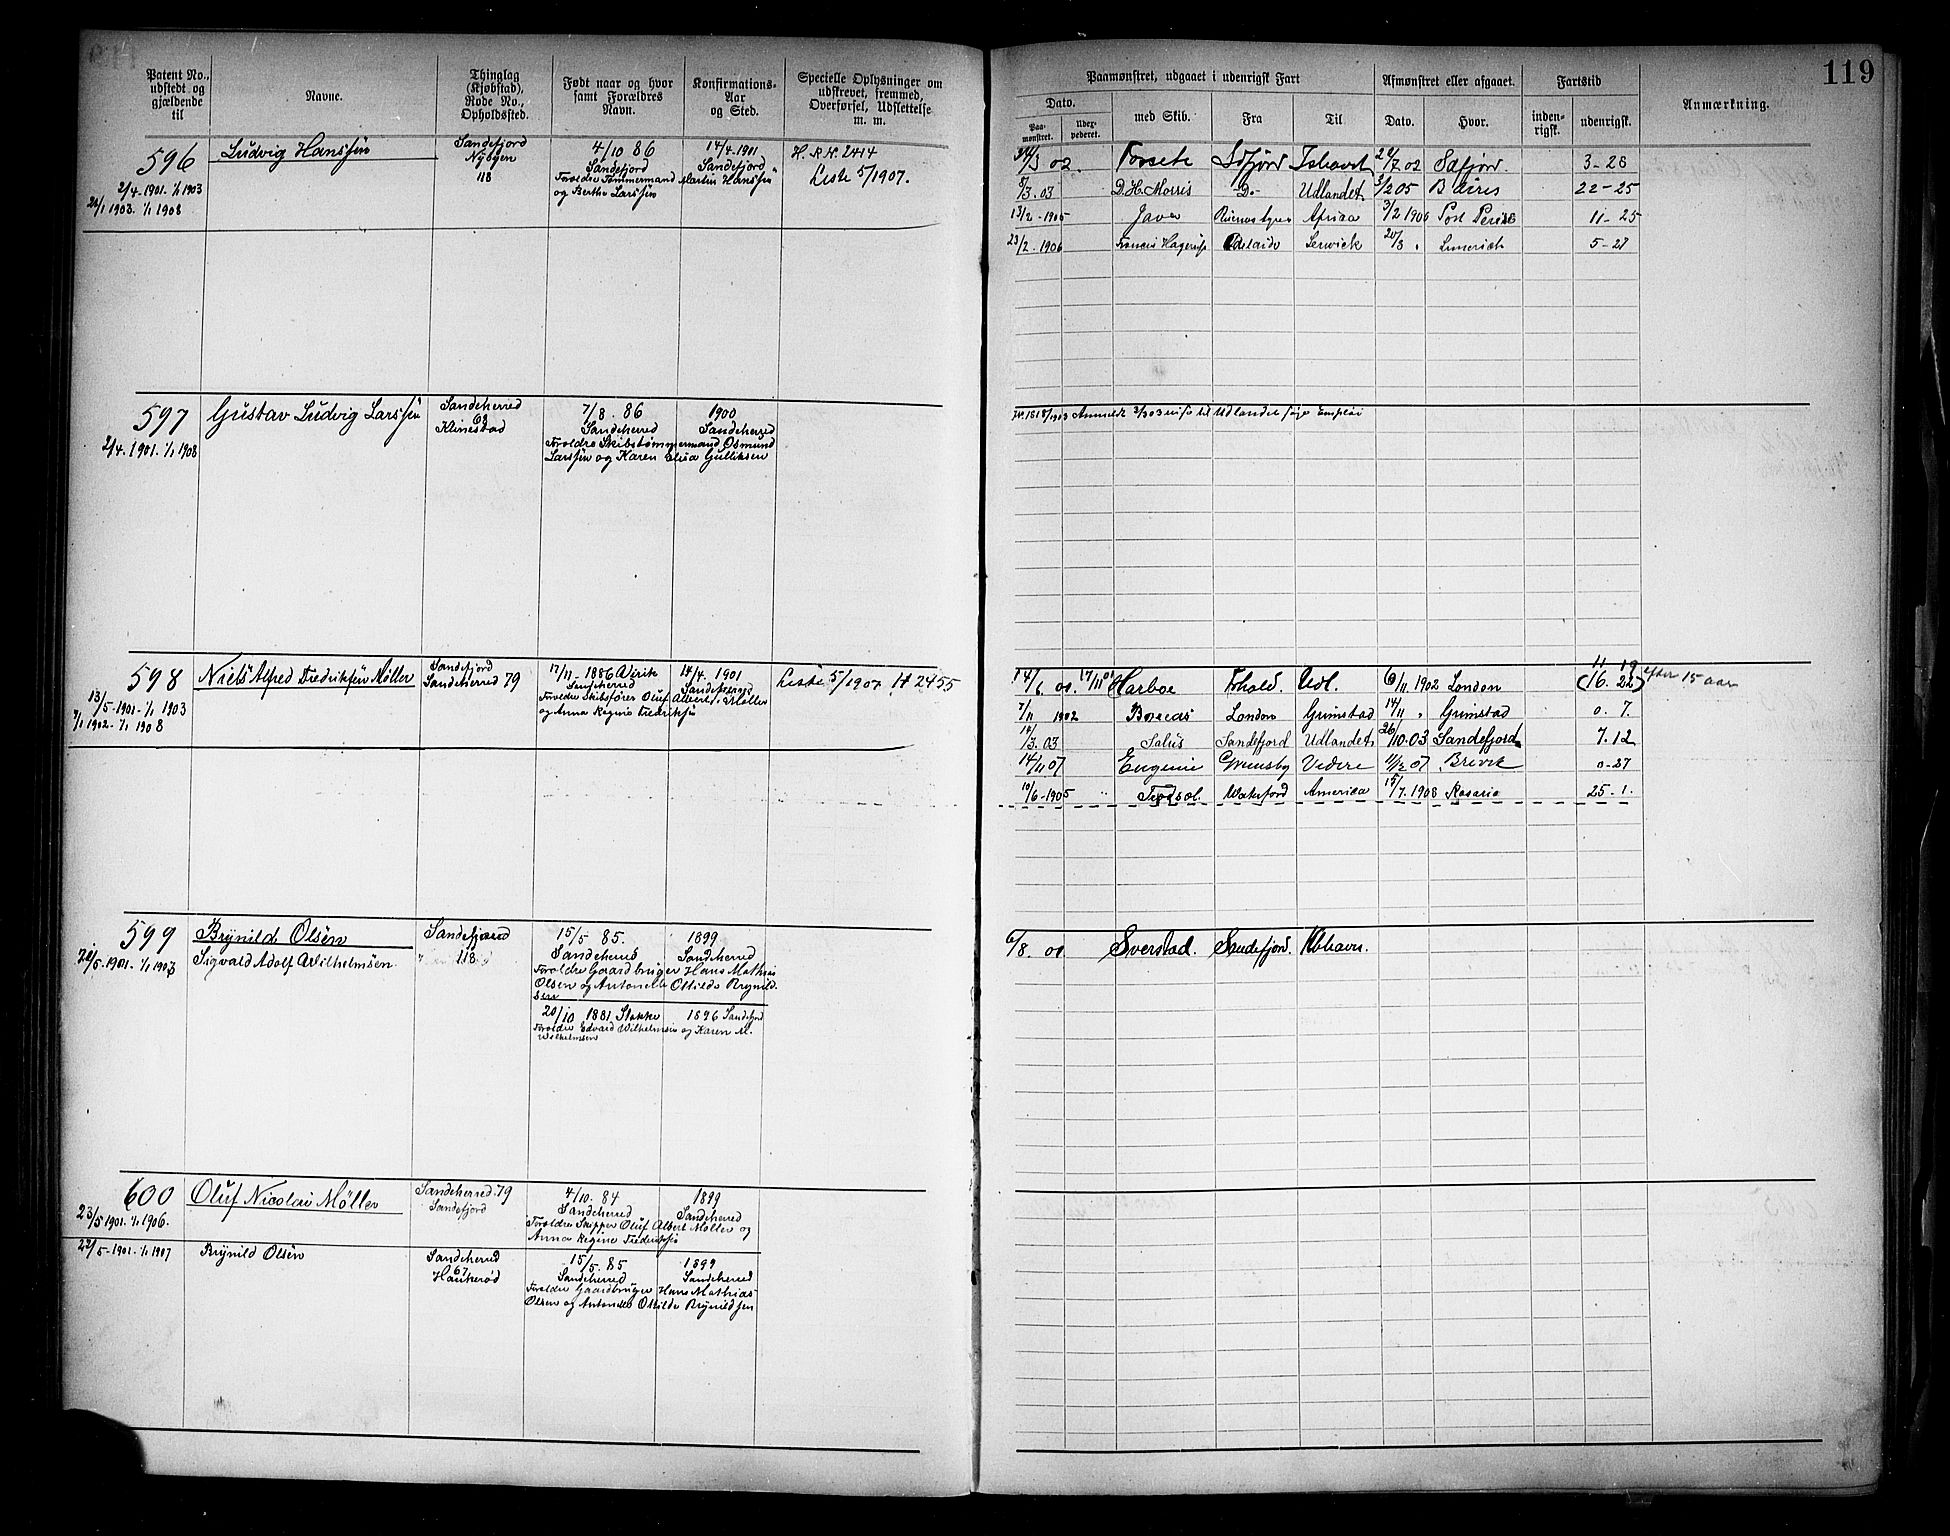 119
Patent No., udstedt og gjældende til
Navne.
Thinglag (Kjøbstad), Rode No., Opholdssted.
Født naar og hvor samt Forældres Navn.
Konfirmations-Aar og Sted.
Specielle Oplysninger om udskrevet, fremmed, Overførsel, Udslettelse m. m.
Paamønstret, udgaaet i udenrigsk Fart
Afmønstret eller afgaaet.
Fartstid
Anmærkning.
Dato.
Paa-mønstret.
Udex-pederet.
med Skib.
Fra
Til
Dato.
Hvor.
inden-rigsk.
udenrigsk.
596
2/4.1901. 1/1 1903
1903. 1/1 1908
Ludvig Hanssen
Sandefjord
Nybyen
118
4/10 86
Sandefjord
Forældre Tømmermand Martin Hanssen
og Berthe Larssen
14/4.1901
Sandefjord
H. R. N. 2414
Liste 5/1907.
02. Forsete Sdfjord Ishavet 2/7 02 Sdfjord 3-28
8/3.03 D. H. Morris Do- Udlandet 3/2 05 B Aires 22-25
13/2-1905 Java Buenos Ayres Africa 3/2 1906 Port Perie 11-25
23/2.1906 Francis Hagerup Adelaide Lerwick 20/3 " Limerick 5-27
597
2/4.1901. 1/1 1908
Gustav Ludvig Larssen
Sandeherred
68
Klinestad
7/8. 86
Sandeherred
Forældre Skibstømmermand Osmund
Larssen og Karen Elisa Gulliksen
1900
Sandeherred
Anmeldt 3/3 03 reise til Udlandet søge Emploi
598
13/5-1901-1/1 1903
7/1 1902-1/1 1908
Niels Alfred Fredriksen Møller
Sandefjord
Sandeherred 79
17/11-1886
Sandeherred
Forældre Skibsfører Oluf Albert Møller
og Anna Regine Fredriksen
14/4. 1901
Sandeherred
Liste 5/1907 H 2455
11 19
14/6 01. 17/11 01 Harboe Frhald. Udl. 6/11 1902 London (16. 22) efter 15 aar
7/11 1902 Boreas London Grimstad 14/11 " Grimstad 0. 7.
14/3.03 Salus Sandefjord Udlandet 26/10.03 Sandefjord 7.12
14/11 07 Eugenie Grimsby Vedere 11/12 07 Brevik 0-27
10/6-1905 " America 15/7.1908 Rosario 25.1.
599
20/5-1901. 1/1 1903
Brynild Olsen
Sigvald Adolf Wilhelmsen
Sandefjord
118
15/5 85.
Sandeherred
Forældre Gaardbruger Hans Mathias
Olsen og Antonette Otilde Brynild-
sen
1899
Sandeherred
20/10 1881 Stokke 1896 Sandefjord
Forældre Edvard Wilhelmsen og Karen M.
Wilhelmsen
6/8. 01 Sverstad. Sandefjord. Kbhavn.
600
23/5 1901. 1/1 1906.
Oluf Nicolai Møller
Sandeherred 79
Sandefjord
4/10. 84
Sandeherred
Forældre Skipper Oluf Albert Møller og
Anna Regine Fredriksen
1899
Sandeherred
22/5-1901-1/1 1907
Brynild Olsen
Sandeherred
67
Haukerød
15/5. 85
Sandeherred
Forældre Gaardbruger Hans Mathias
Olsen og Antonette Otilde Brynildsen
1899
Sandeherred